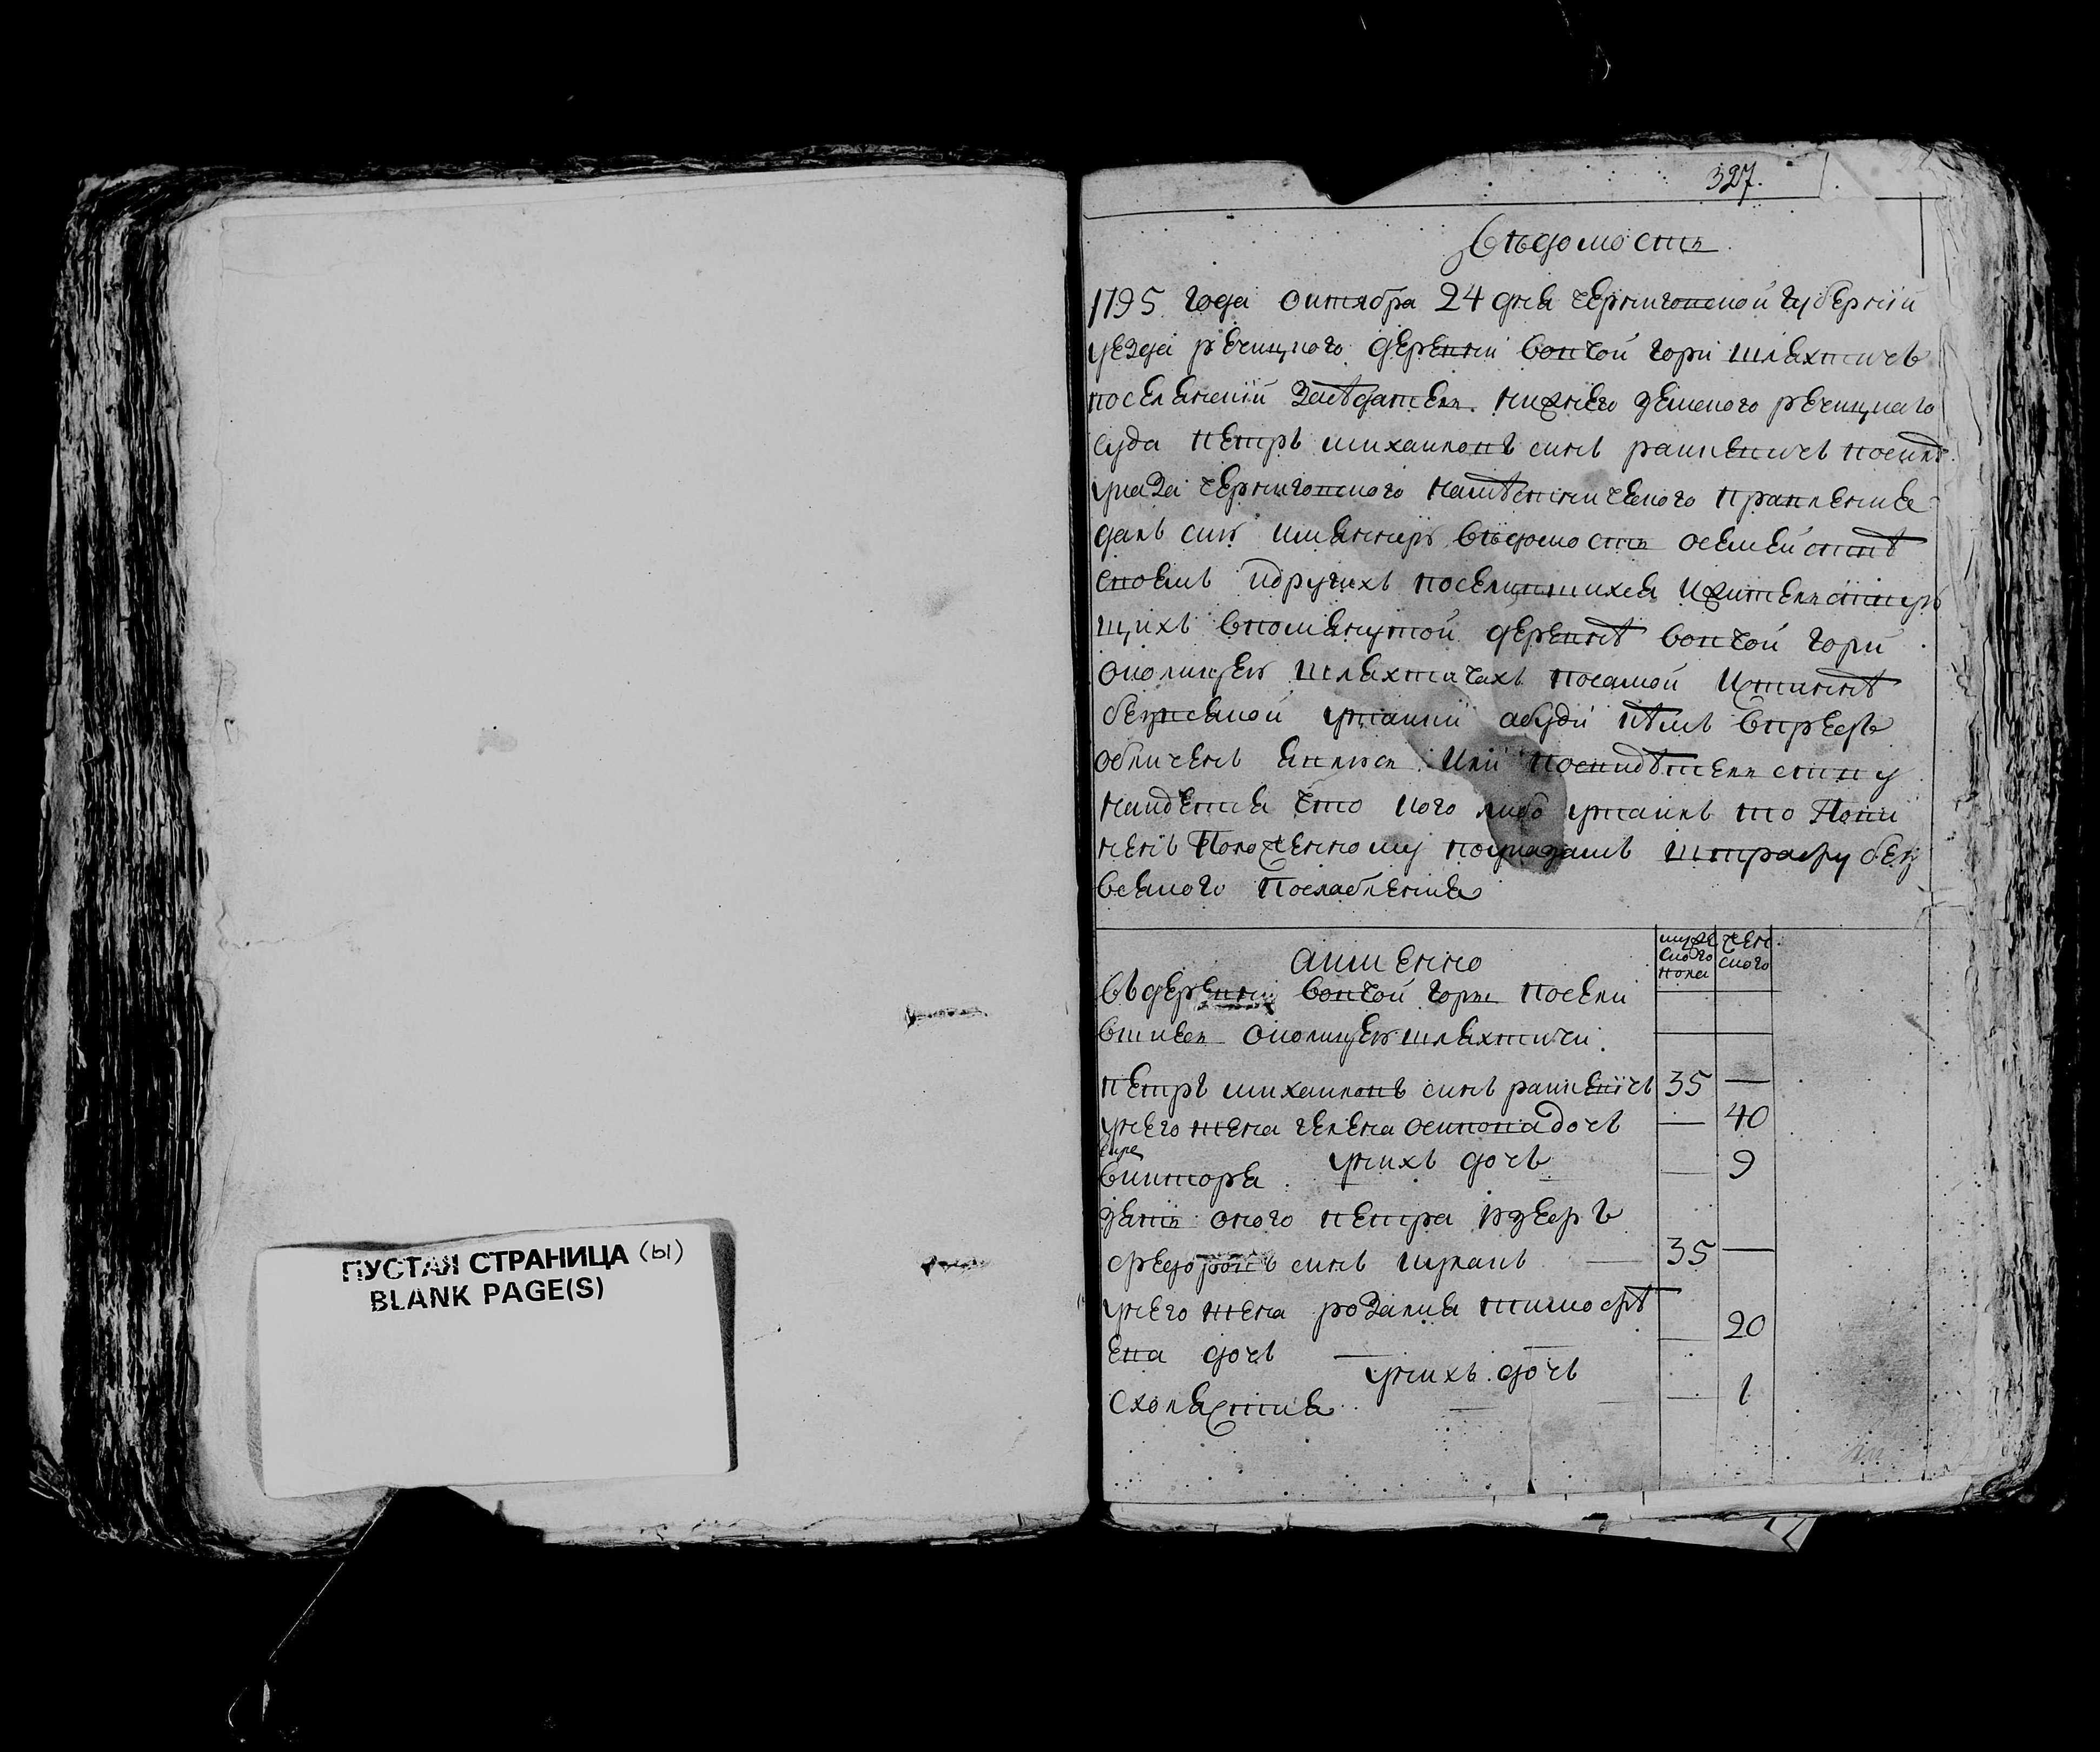 ПУСТАЯ СТРАНИЦА (Ы)
BLANK PAGE(S)
327.
вѣдомость
1795 года октября 24 дня черниговской губернїй
уезда речицкого деревни вовчой гори шляхтичъ
поселенїй засѣдатель нижнего земского речицкаго
суда петръ михаиловъ синъ рашкевичъ
указа черниговского намѣстническаго правления
далъ сию имянную вѣдомость осемействѣ
своемъ идругихъ поселившихся ижительствую
щихъ впомянутой деревнѣ вовчой гори
околицею шляхтичахъ посамой истиннѣ
безвсякой утайкй абуди кѣмъ впредь
обличенъ явлюся илй посвидѣтельству
найдется что кого либо утаилъ то пови
ненъ положенному поуказамъ штрафу без
всякого послабления
аимянно
мужескаго пола
женского
въдеревни вовчой гори посели
вшиеся околицею шляхтичи.
петръ михаиловъ синъ рашкевїчъ 35 —
унего жена гелена осиповадочь — 40
унихъ дочь
виктория — 9
зять оного петра
федоровъ синъ — 35 —
унего жена розалия тимофѣ
ева дочь — 20
унихъ дочь
схолястика — 1